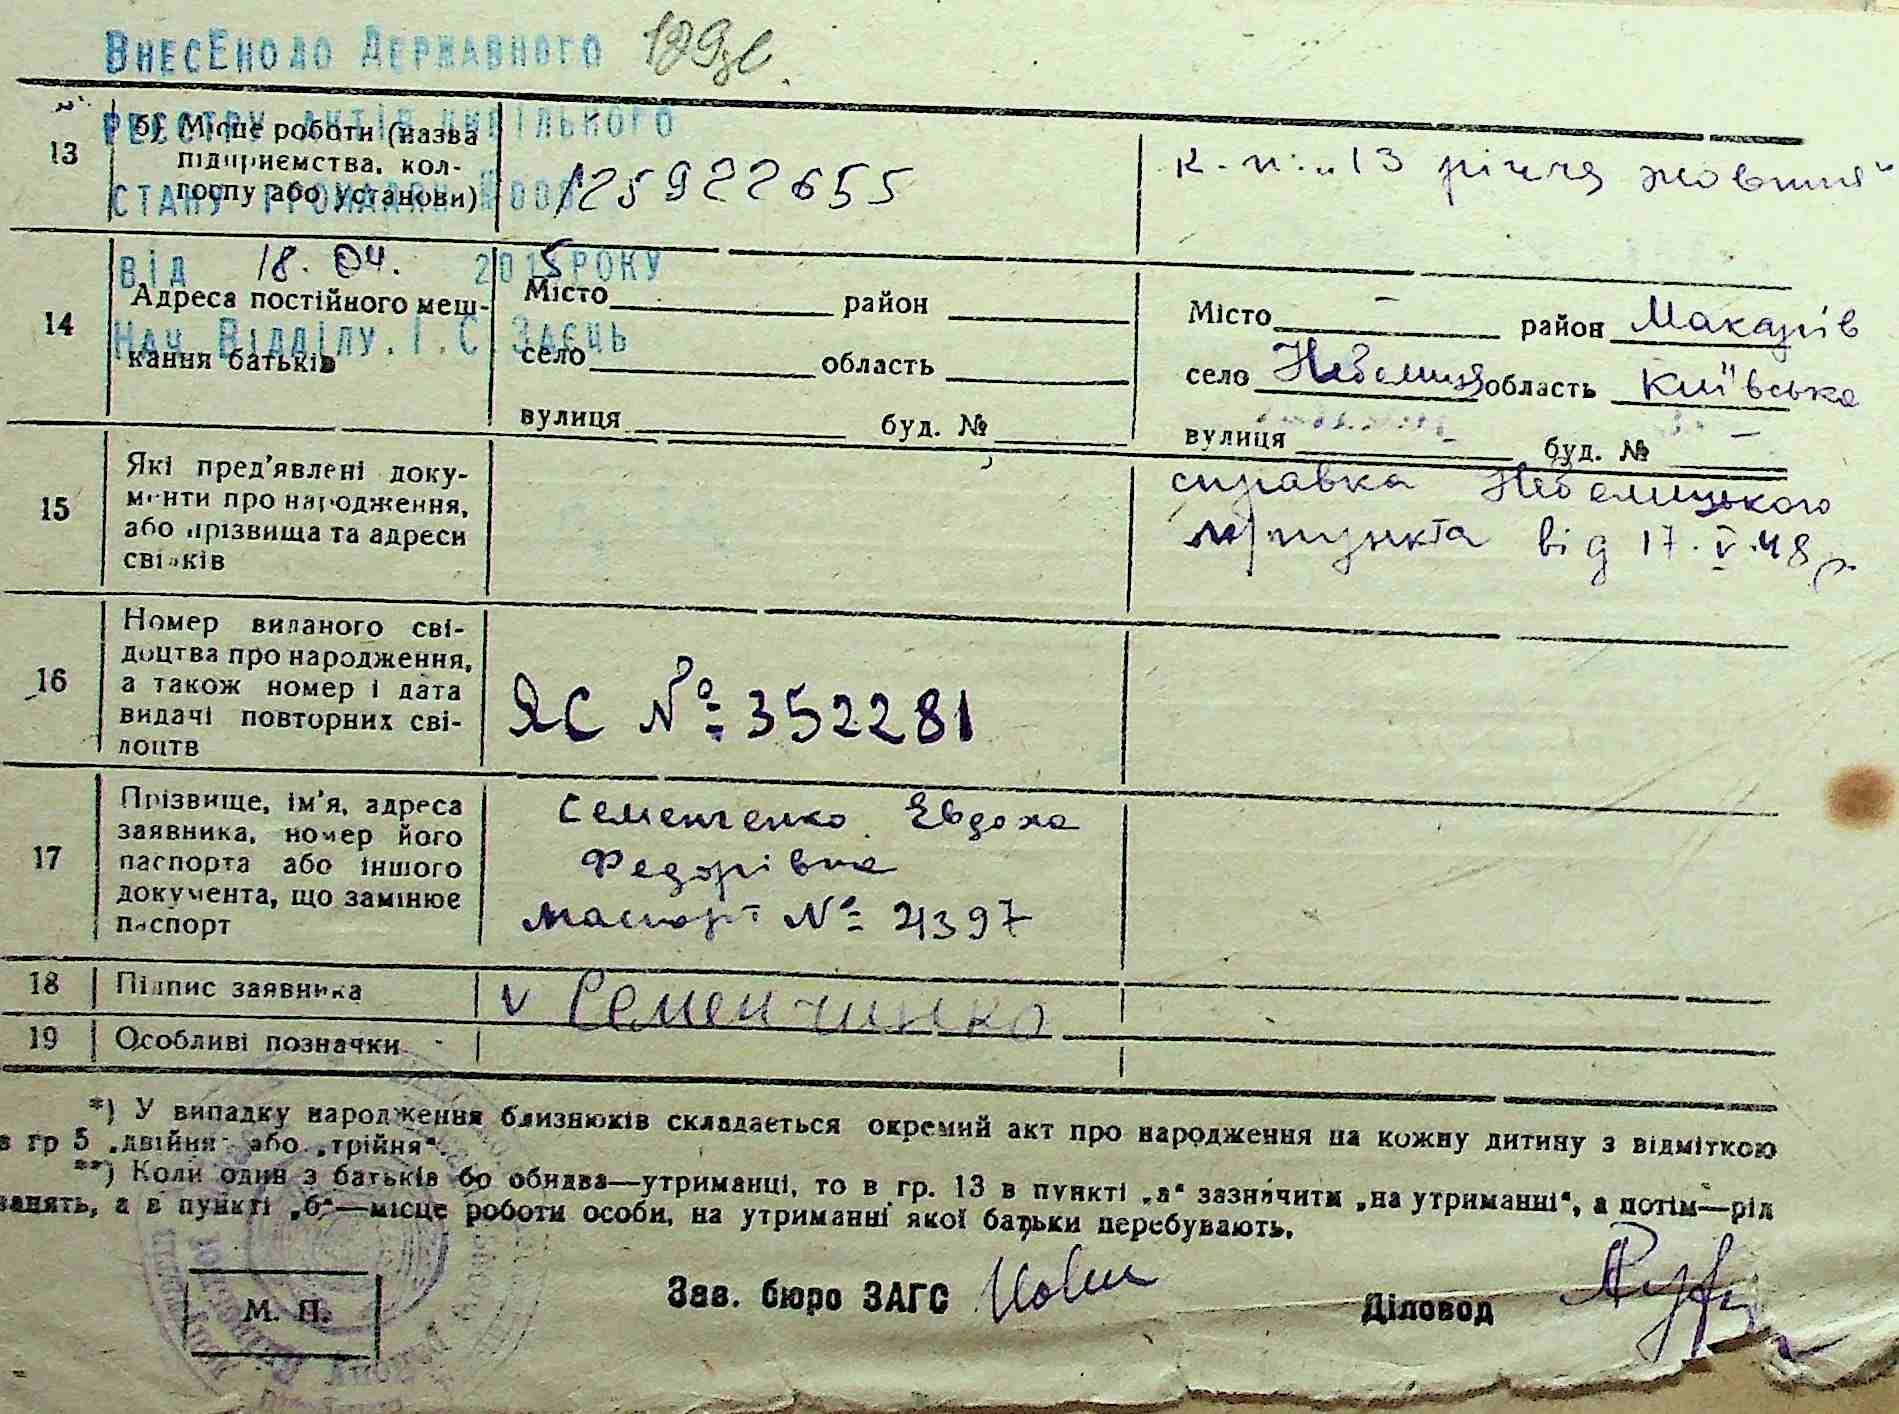 ВНЕСЕНО ДО ДЕРЖАВНОГО
РЕЄСТРУ АКТІВ ЦИВІЛЬНОГО
13
б) Місце роботи (назва
підприємства, кол-
госпу або установи)
125922655
к-п: „13 річчя жовтня"
СТАНУ ГРОМАДЯН
ВІД 18.04. 2015 РОКУ
НАЧ. ВІДДІЛУ. І.С ЗАЄЦЬ
14
Адреса постійного меш-
кання батьків
Місто район
село область
вулиця буд. №
Місто - район Макарів
село Небелиця область Київська
вулиця - буд. № -
15
Які пред'явлені доку-
менти про народження,
або прізвища та адреси
свідків
справка Небелицького
м/пункта від 17.V.48 р.
16
Номер виданого сві-
доцтва про народження,
а також номер і дата
видачі повторних сві-
доцтв
ЯС № 352281
17
Прізвище, ім'я, адреса
заявника, номер його
паспорта або іншого
документа, що замінює
паспорт
Семенченко Евдоха
Федорівна
паспорт № 4397
18
Підпис заявника
v Семенчинко
19
Особливі позначки
*) У випадку народження близнюків складається окремий акт про народження на кожну дитину з відміткою
в гр 5 „двійня" або „трійня".
**) Коли один з батьків бо обидва—утриманці, то в гр. 13 в пункті „а" зазначити „на утриманні", а потім—рід
занять, а в пункті „б"—місце роботи особи, на утриманні якої батьки перебувають.
М. П.
Зав. бюро ЗАГС
Діловод